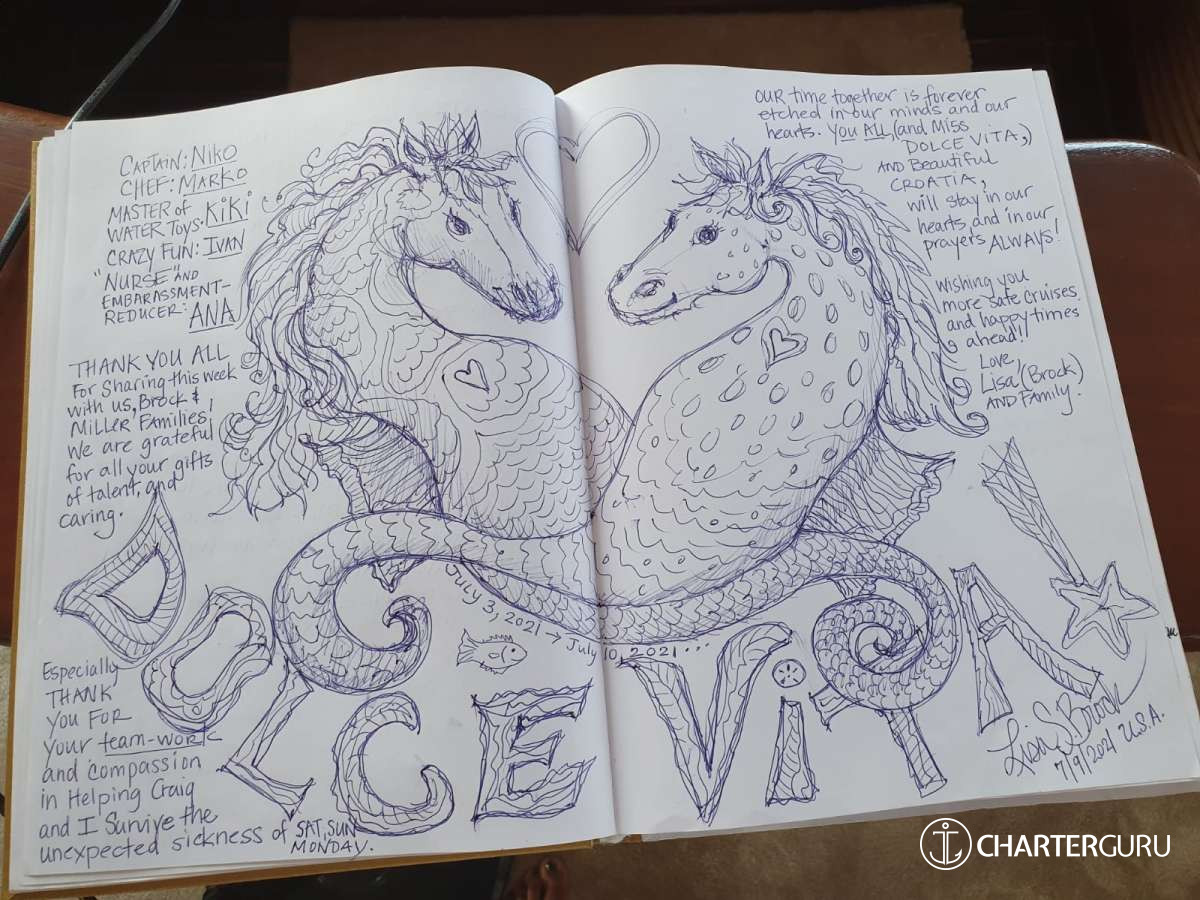 CAPTAIN: NIKO
CHEF: MARKO
MASTER of
WATER TOYS: KiKi
CRAZY FUN: IVAN
"NURSE" AND
EMBARASSMENT-
REDUCER: ANA
THANK YOU ALL
For Sharing this week
with us, Brock &
MILLER Families,
We are grateful
for all your gifts
of talent, and
caring.
Especially
THANK
YOU FOR
your team-work
and compassion
in Helping Craig
and I Survive the
unexpected sickness of SAT, SUN
MONDAY.
July 3, 2021 → July 10, 2021 ...
DOLCE ViTA
OUR time together is forever
etched in our minds and our
hearts. You ALL, (and Miss
DOLCE VITA,)
AND Beautiful
CROATIA,
will stay in our
hearts and in our
prayers ALWAYS!
Wishing you
more safe cruises
and happy times
ahead!!
Love,
Lisa (Brock)
AND Family.
Lisa S. Brock
7/9/2021 U.S.A.
CHARTERGURU